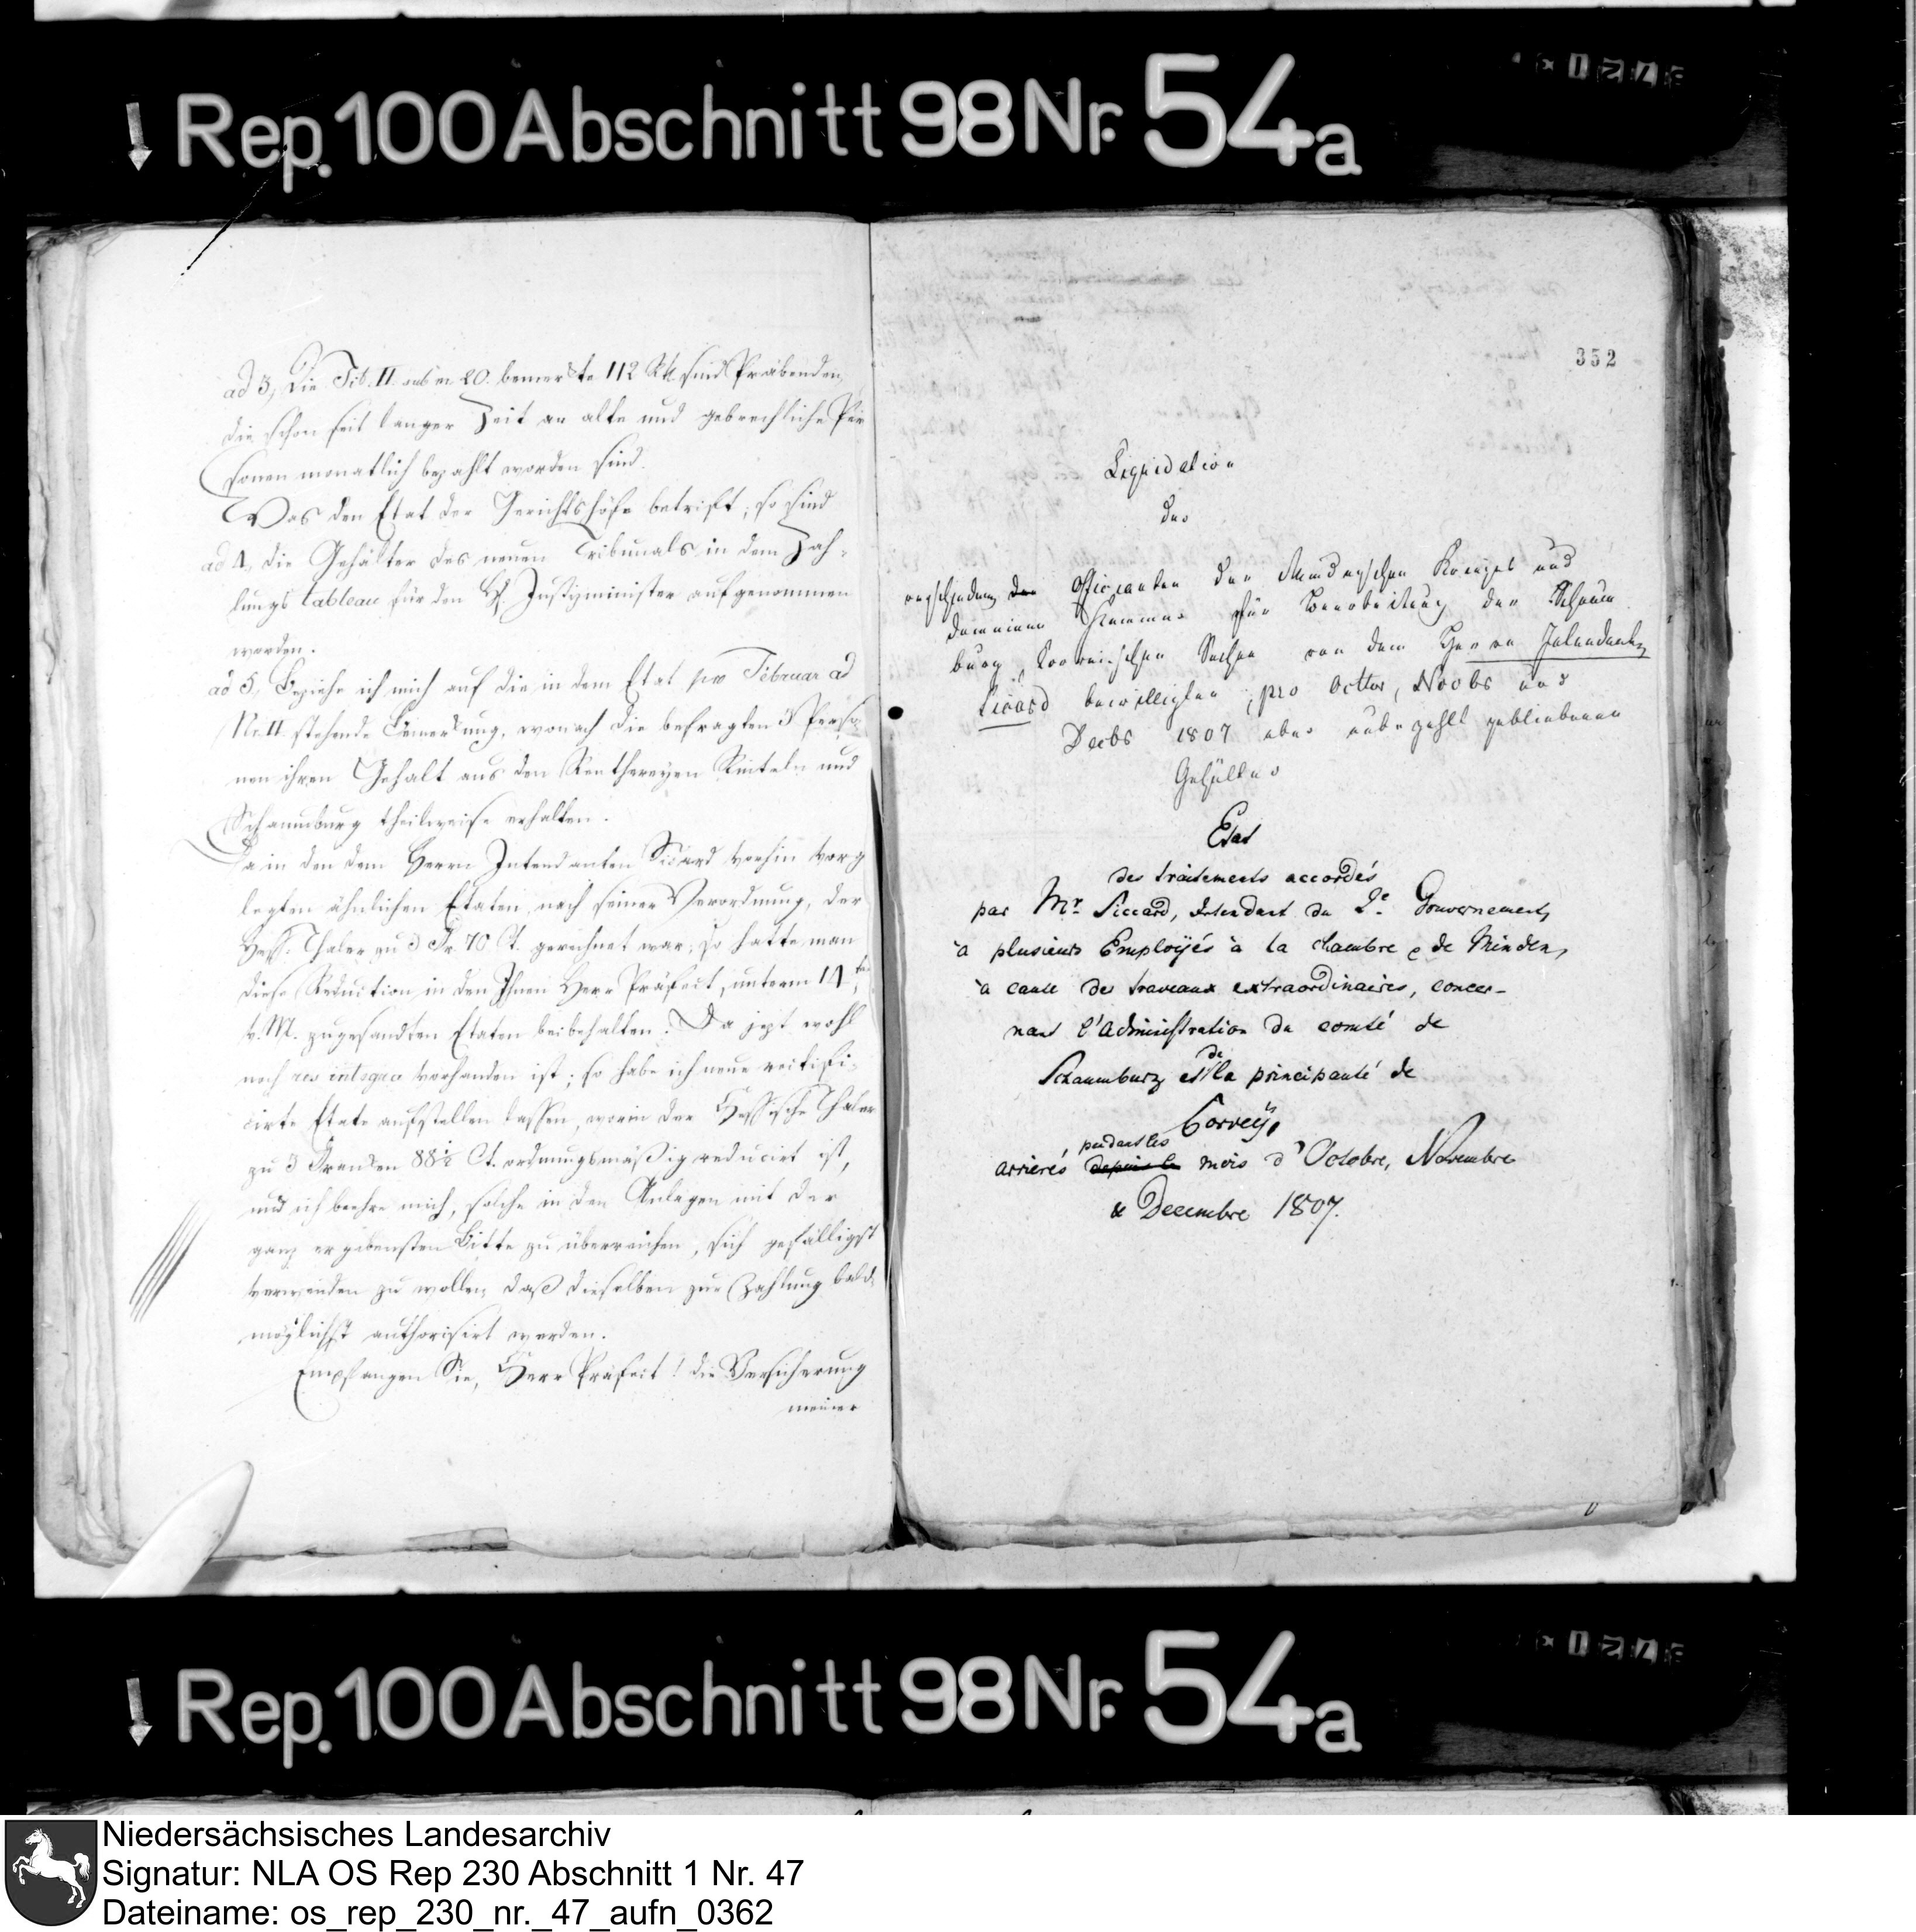 Rep. 100 Abschnitt 98 Nr. 54a
ad 3, Die Tit. II. sub n. 20. bemerkte 112 Rtl. sind Präbenden,
die schon seit langer Zeit an alte und gebrechliche Per
sonen monatlich bezahlt worden sind.
Was den Etat der Gerichtshöfe betrift, so sind
ad 4, die Gehälter des neuen Tribunals in dem Zah-
lungs tableau für den H. Justizminister aufgenommen
worden.
ad 5, Beziehe ich mich auf die in dem Etat pro Februar ad
Nr. II. stehende Bemerkung, wonach die befragten 3 Perso
nen ihren Gehalt aus den Renthereyen Rinteln und
Schaumburg theilweise erhalten.
Da in den dem Herrn Intendanten Sicard vorhin vorg
legten ähnlichen Etaten, nach seiner Verordnung, der
Hess. Thaler zu 3 Fr. 70 Ct. gerechnet war; so hatte man
diese Reduction in den Ihnen Herr Präfect, unterm 14ten
v. M. zugesandten Etaten beibehalten. Da jezt wohl
noch res integra vorhanden ist; so habe ich neue rectifi-
cirte Etats aufstellen lassen, worin der Hessische Thaler
zu 3 Franken 88½ Ct. ordnungsmäßig reducirt ist,
und ich beehre mich, solche in den Anlagen mit der
ganz ergebensten Bitte zu überreichen, sich gefälligst
verwenden zu wollen, daß dieselben zur Zahlung bald-
möglichst authorisirt werden.
Empfangen Sie, Herr Präfect! die Versicherung
meiner
352
Liquidation
der
verschiedenen der Officianten der Mindenschen Krieges und
Domainen Kammer für Bearbeitung der Schaum
burg, Corveischen Sachen von dem Herrn Intendanten
Sicard bewilligten, pro Octbr, Novbr und
Decbr 1807 aber unbezahlt gebliebenen
Gehälter
Etat
des traitements accordés
par Mr. Siccard, Intendant du 2e. Gouvernement,
à plusieurs Employés à la chambre de Minden,
à cause des travaux extraordinaires, concer-
nant l'administration du comté de
Schaumburg et de la principauté de
Corvey,
arrierés depuis le pendant les mois d'Octobre, Novembre
& Decembre 1807.
Rep. 100 Abschnitt 98 Nr. 54a
Niedersächsisches Landesarchiv
Signatur: NLA OS Rep 230 Abschnitt 1 Nr. 47
Dateiname: os_rep_230_nr._47_aufn_0362